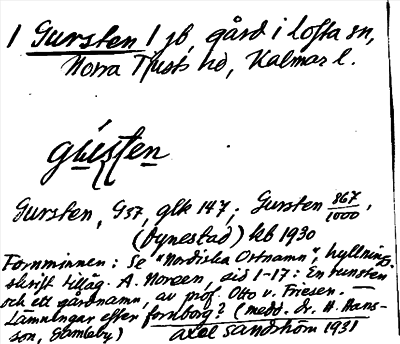 1 Gursten 1 jb, gård i Lofta sn,
Norra Tjusts hd, Kalmar l.
Gursten, G57, glk 147; Gursten 867/1000,
(Dynestad) kb 1930
Fornminnen: Se "Nordiska Ortnamn", hyllnings-
skrift tilläg. A. Noreen, sid 1-17: En runsten
och ett gårdnamn, av prof. Otto v. Friesen. —
Lämningar efter fornborg? (medd. dr. H. Hans-
son, Gamleby) Axel Sandström 1931